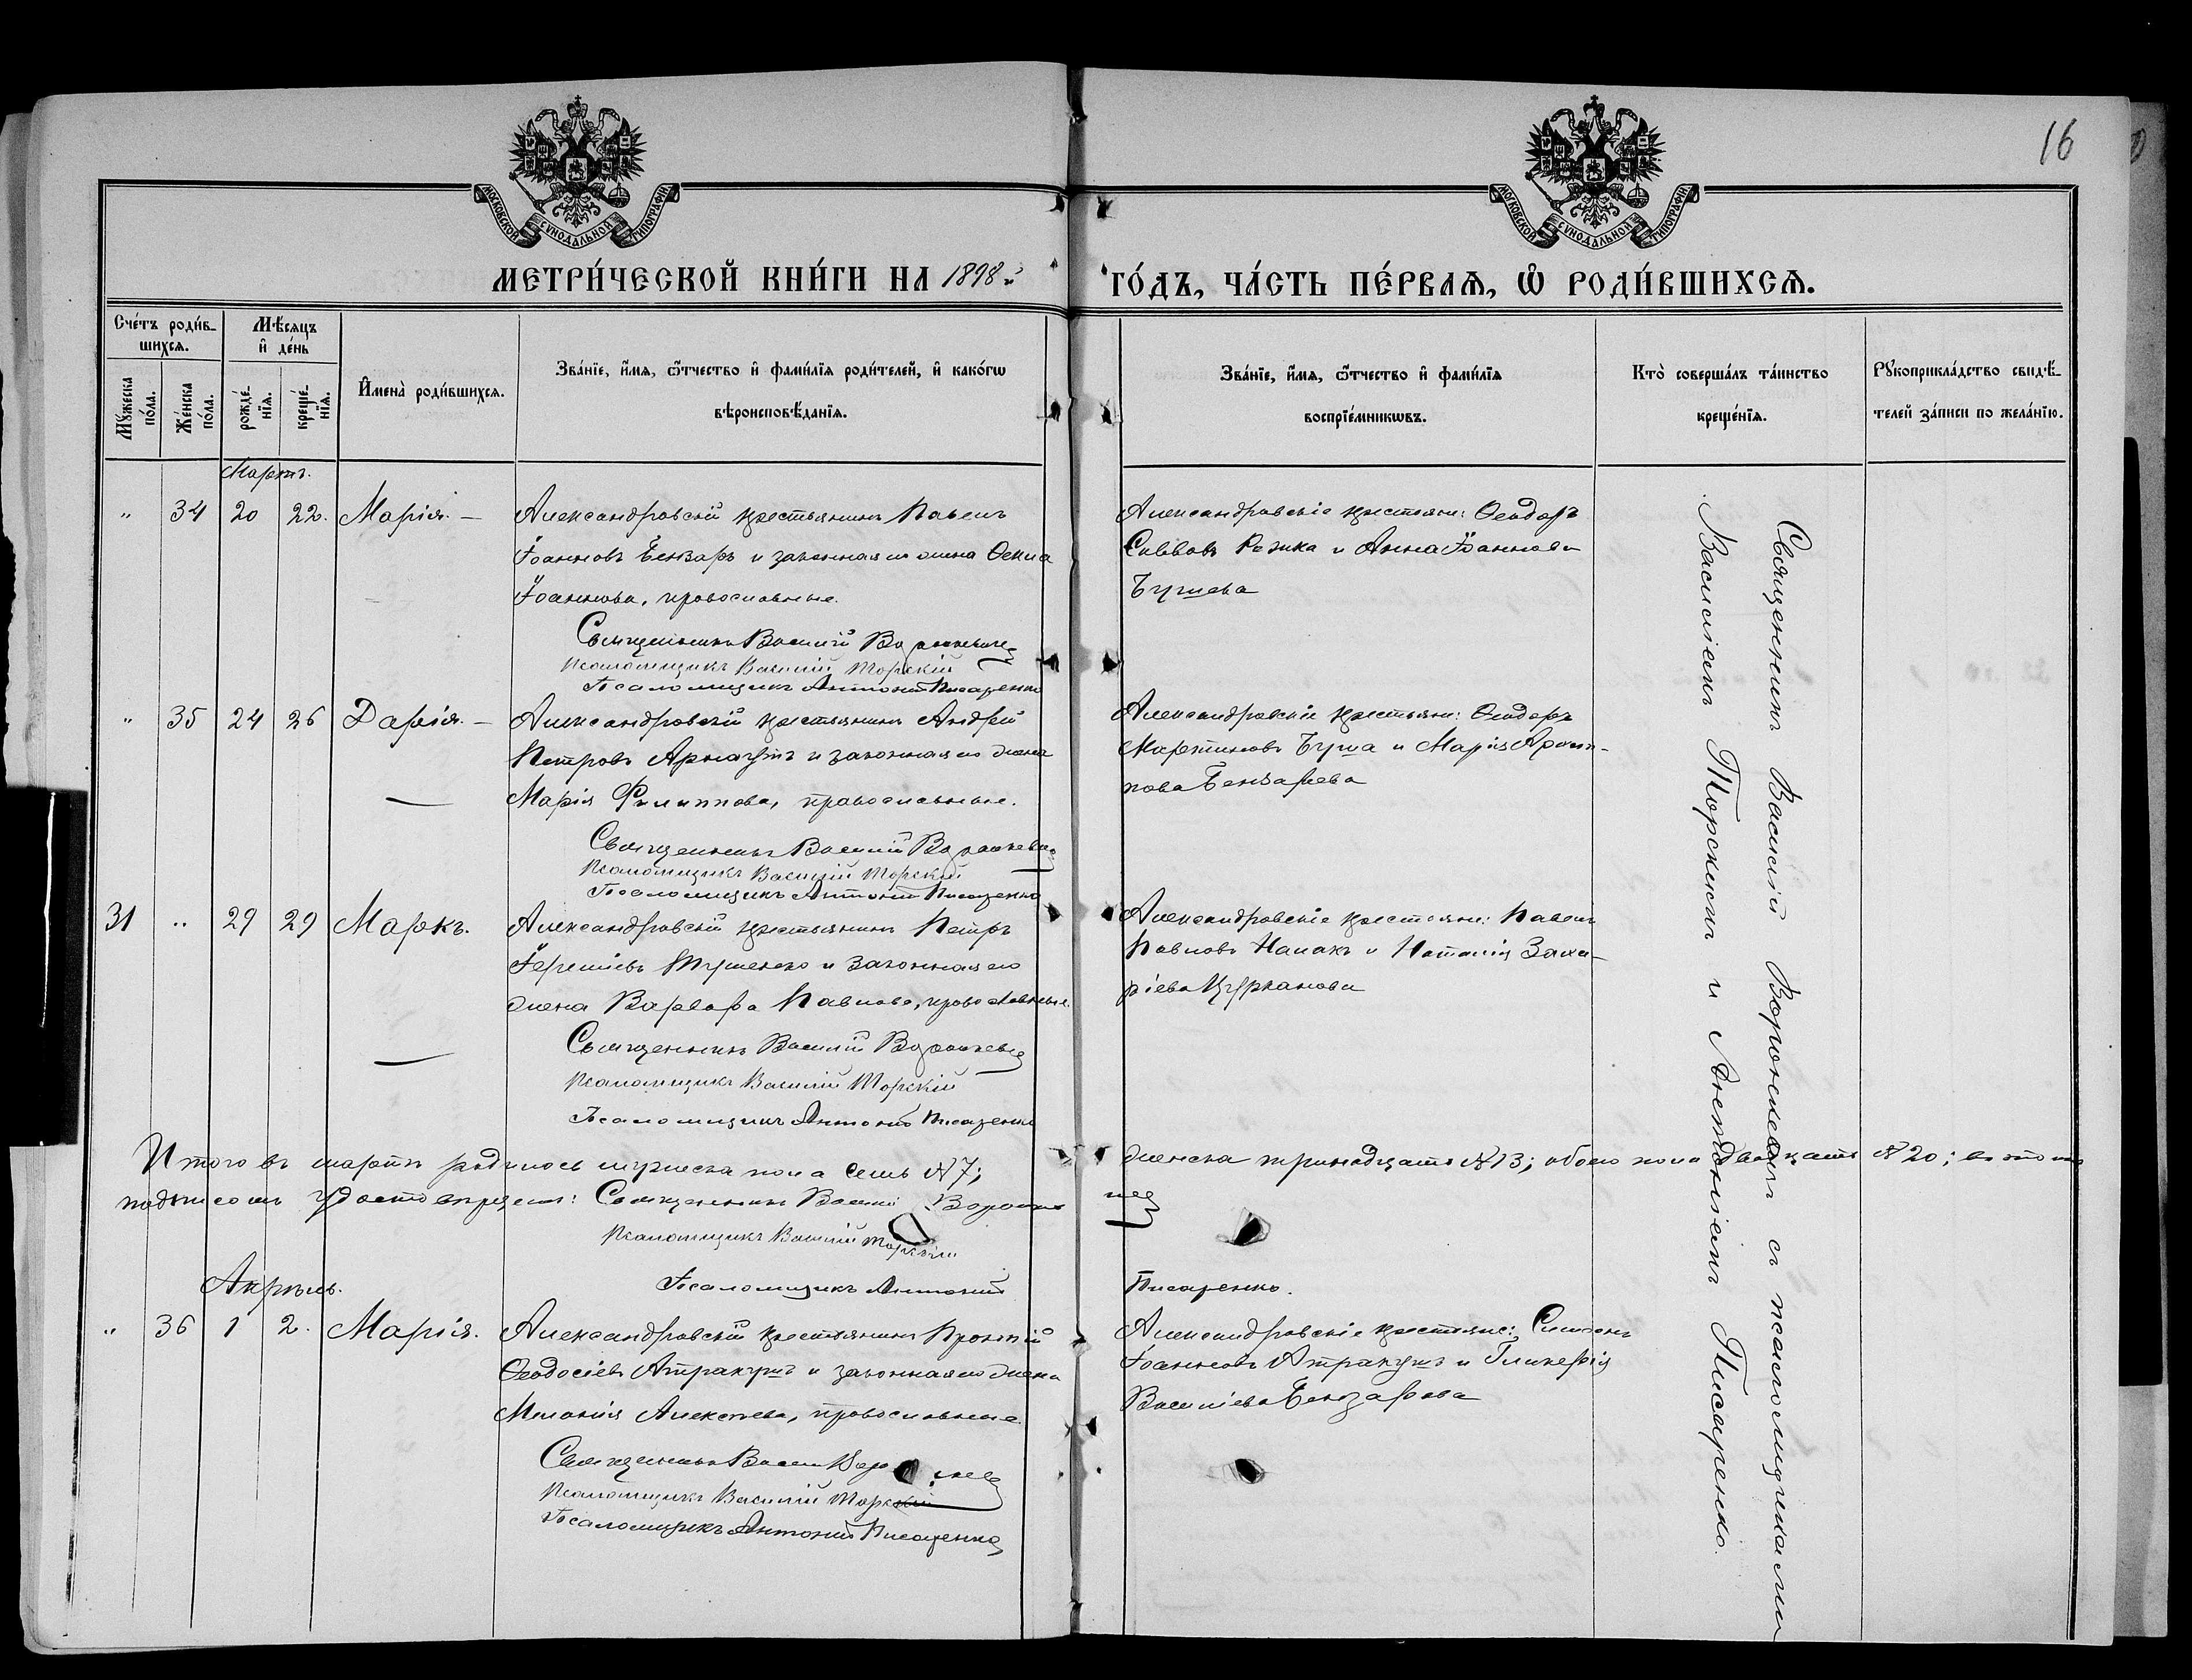 16
МОСКОВСКОЙ СУНОДАЛЬНОЙ ТИПОГРАФІИ
МОСКОВСКОЙ СУНОДАЛЬНОЙ ТИПОГРАФІИ
МЕТРИ́ЧЕСКОЙ КНИ́ГИ НА 1898 й ГО́ДЪ, ЧА́СТЬ ПЕ́РВАѦ, Ѡ҆ РОДИ́ВШИХСѦ.
Сче́тъ роди́в-
шихсѧ.
Мꙋ́жеска
по́ла.
Же́нска
по́ла.
Мѣ́сяцъ
и҆ де́нь
рожде́-
нїѧ.
креще́-
нїѧ.
И҆мена̀ роди́вшихсѧ.
Зва́нїе, и҆́мѧ, ѻ҆́тчество и҆ фами́лїѧ роди́телей, и҆ како́гѡ
вѣроисповѣ́данїѧ.
Зва́нїе, и҆́мѧ, ѻ҆́тчество и҆ фами́лїѧ
воспрїе́мникѡвъ.
Кто̀ соверша́лъ та́инство
креще́нїѧ.
Рꙋкоприкла́дство свидѣ́-
телей за́писи по жела́нїю.
Мартъ.
" 34 20 22. Марія. —
Александровскій крестьянинъ Павелъ
Іоанновъ Бензаръ и законная его жена Ѳекла
Іоаннова, православные.
Священникъ Василій Воронкевичъ
Псаломщикъ Василій Торскій
Псаломщикъ Антоній Писаренко
Александровскіе крестьяне: Ѳеодоръ
Саввовъ Розика и Анна Іоаннова
Бушева
" 35 24 26 Дарія. —
Александровскій крестьянинъ Андрей
Петровъ Арнаутъ и законная его жена
Марія Филиппова, православные.
Священникъ Василій Воронкевичъ
Псаломщикъ Василій Торскій
Псаломщикъ Антоній Писаренко
Александровскіе крестьяне: Ѳеодоръ
Мартиновъ Буша и Марія
Бензарева
31 " 29 29 Маркъ.
Александровскій крестьянинъ Петръ
Іереміевъ Тушенко и законная его
жена Варвара Павлова, православные.
Священникъ Василій Воронкевичъ
Псаломщикъ Василій Торскій
Псаломщикъ Антоній Писаренко
Александровскіе крестьяне: Павелъ
Павловъ и Наталія Заха-
ріева Цурканова
Итого въ мартѣ родилось мужеска пола семь № 7; женска тринадцать № 13; обоего пола двадцать № 20; въ томъ
подписомъ удостовѣряемъ: Священникъ Василій Воронкевичъ
Псаломщикъ Василій Торскій
Псаломщикъ Антоній Писаренко.
Апрѣль.
" 36 1 2. Марія.
Александровскій крестьянинъ
Ѳеодосіевъ Атракушъ и законная его жена
Меланія Алексѣева, православные
Священникъ Василій Воронкевичъ
Псаломщикъ Василій Торскій
Псаломщикъ Антоній Писаренко
Александровскіе крестьяне: Симеонъ
Іоанновъ Атракушъ и Гликерія
Василіева Бензарова
Священникъ Василій Воронкевичъ съ псаломщиками
Василіемъ Торскимъ и Антоніемъ Писаренко.